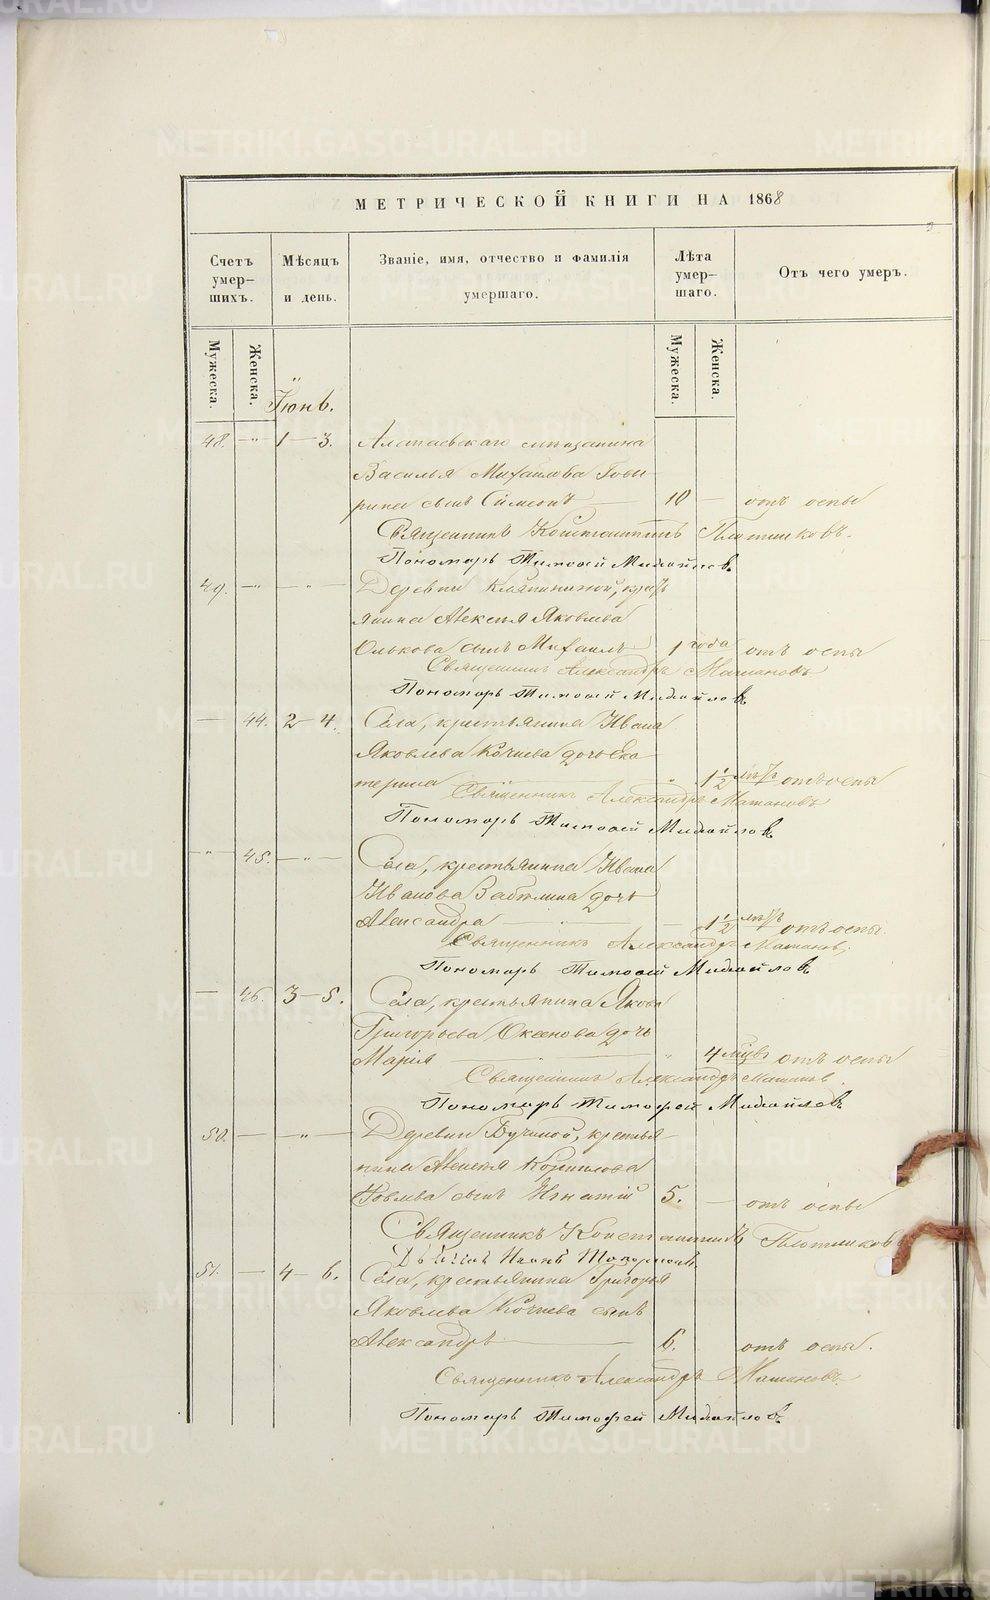 МЕТРИЧЕСКОЙ КНИГИ НА 1868
Счетъ умер-шихъ.
Мѣсяцъ и день.
Званіе, имя, отчество и фамилія умершаго.
Лѣта умер-шаго.
Отъ чего умеръ.
Мужеска.
Женска.
Мужеска.
Женска.
Іюнь.
48. — " — 1 — 3. Алапаевскаго мѣщанина
Василья Михаилова
рина сынъ Симеонъ — 10 — отъ оспы
Священникъ Константинъ Плотниковъ.
Пономарь Тимоѳей Михайловъ.
49. — " — " — Деревни кресть
янина Алексѣя Яковлева
Олькова сынъ Михаилъ 1 года отъ оспы
Священникъ Александръ
Пономарь Тимоѳей Михайловъ
— 44. 2 — 4. Села, крестьянина Ивана
Яковлева Кочнева дочь Ека
терина — " 1 1/2 лѣтъ отъ оспы
Священникъ Александръ
Пономарь Тимоѳей Михайловъ
— " — 45. — " — Села, крестьянина Ивана
Иванова дочь
Александра — — 1 1/2 лѣтъ отъ оспы.
Священникъ Александръ
Пономарь Тимоѳей Михайловъ
— 46. 3 — 5. Села, крестьянина Якова
Григорьева Оксенова дочь
Марія — " 4 мѣсъ отъ оспы
Священникъ Александръ
Пономарь Тимофей Михайловъ
50. — — " — Деревни Бучиной, крестья
нина Алексѣя Корнилова
сынъ Игнатій 5. — отъ оспы
Священникъ Константинъ Плотниковъ
Иванъ
51. — 4 — 6. Села, крестьянина Григорья
Яковлева Кочнева сынъ
Александръ — 6. отъ оспы.
Священникъ Александръ
Пономарь Тимофей Михайловъ.
METRIKI.GASO-URAL.RU